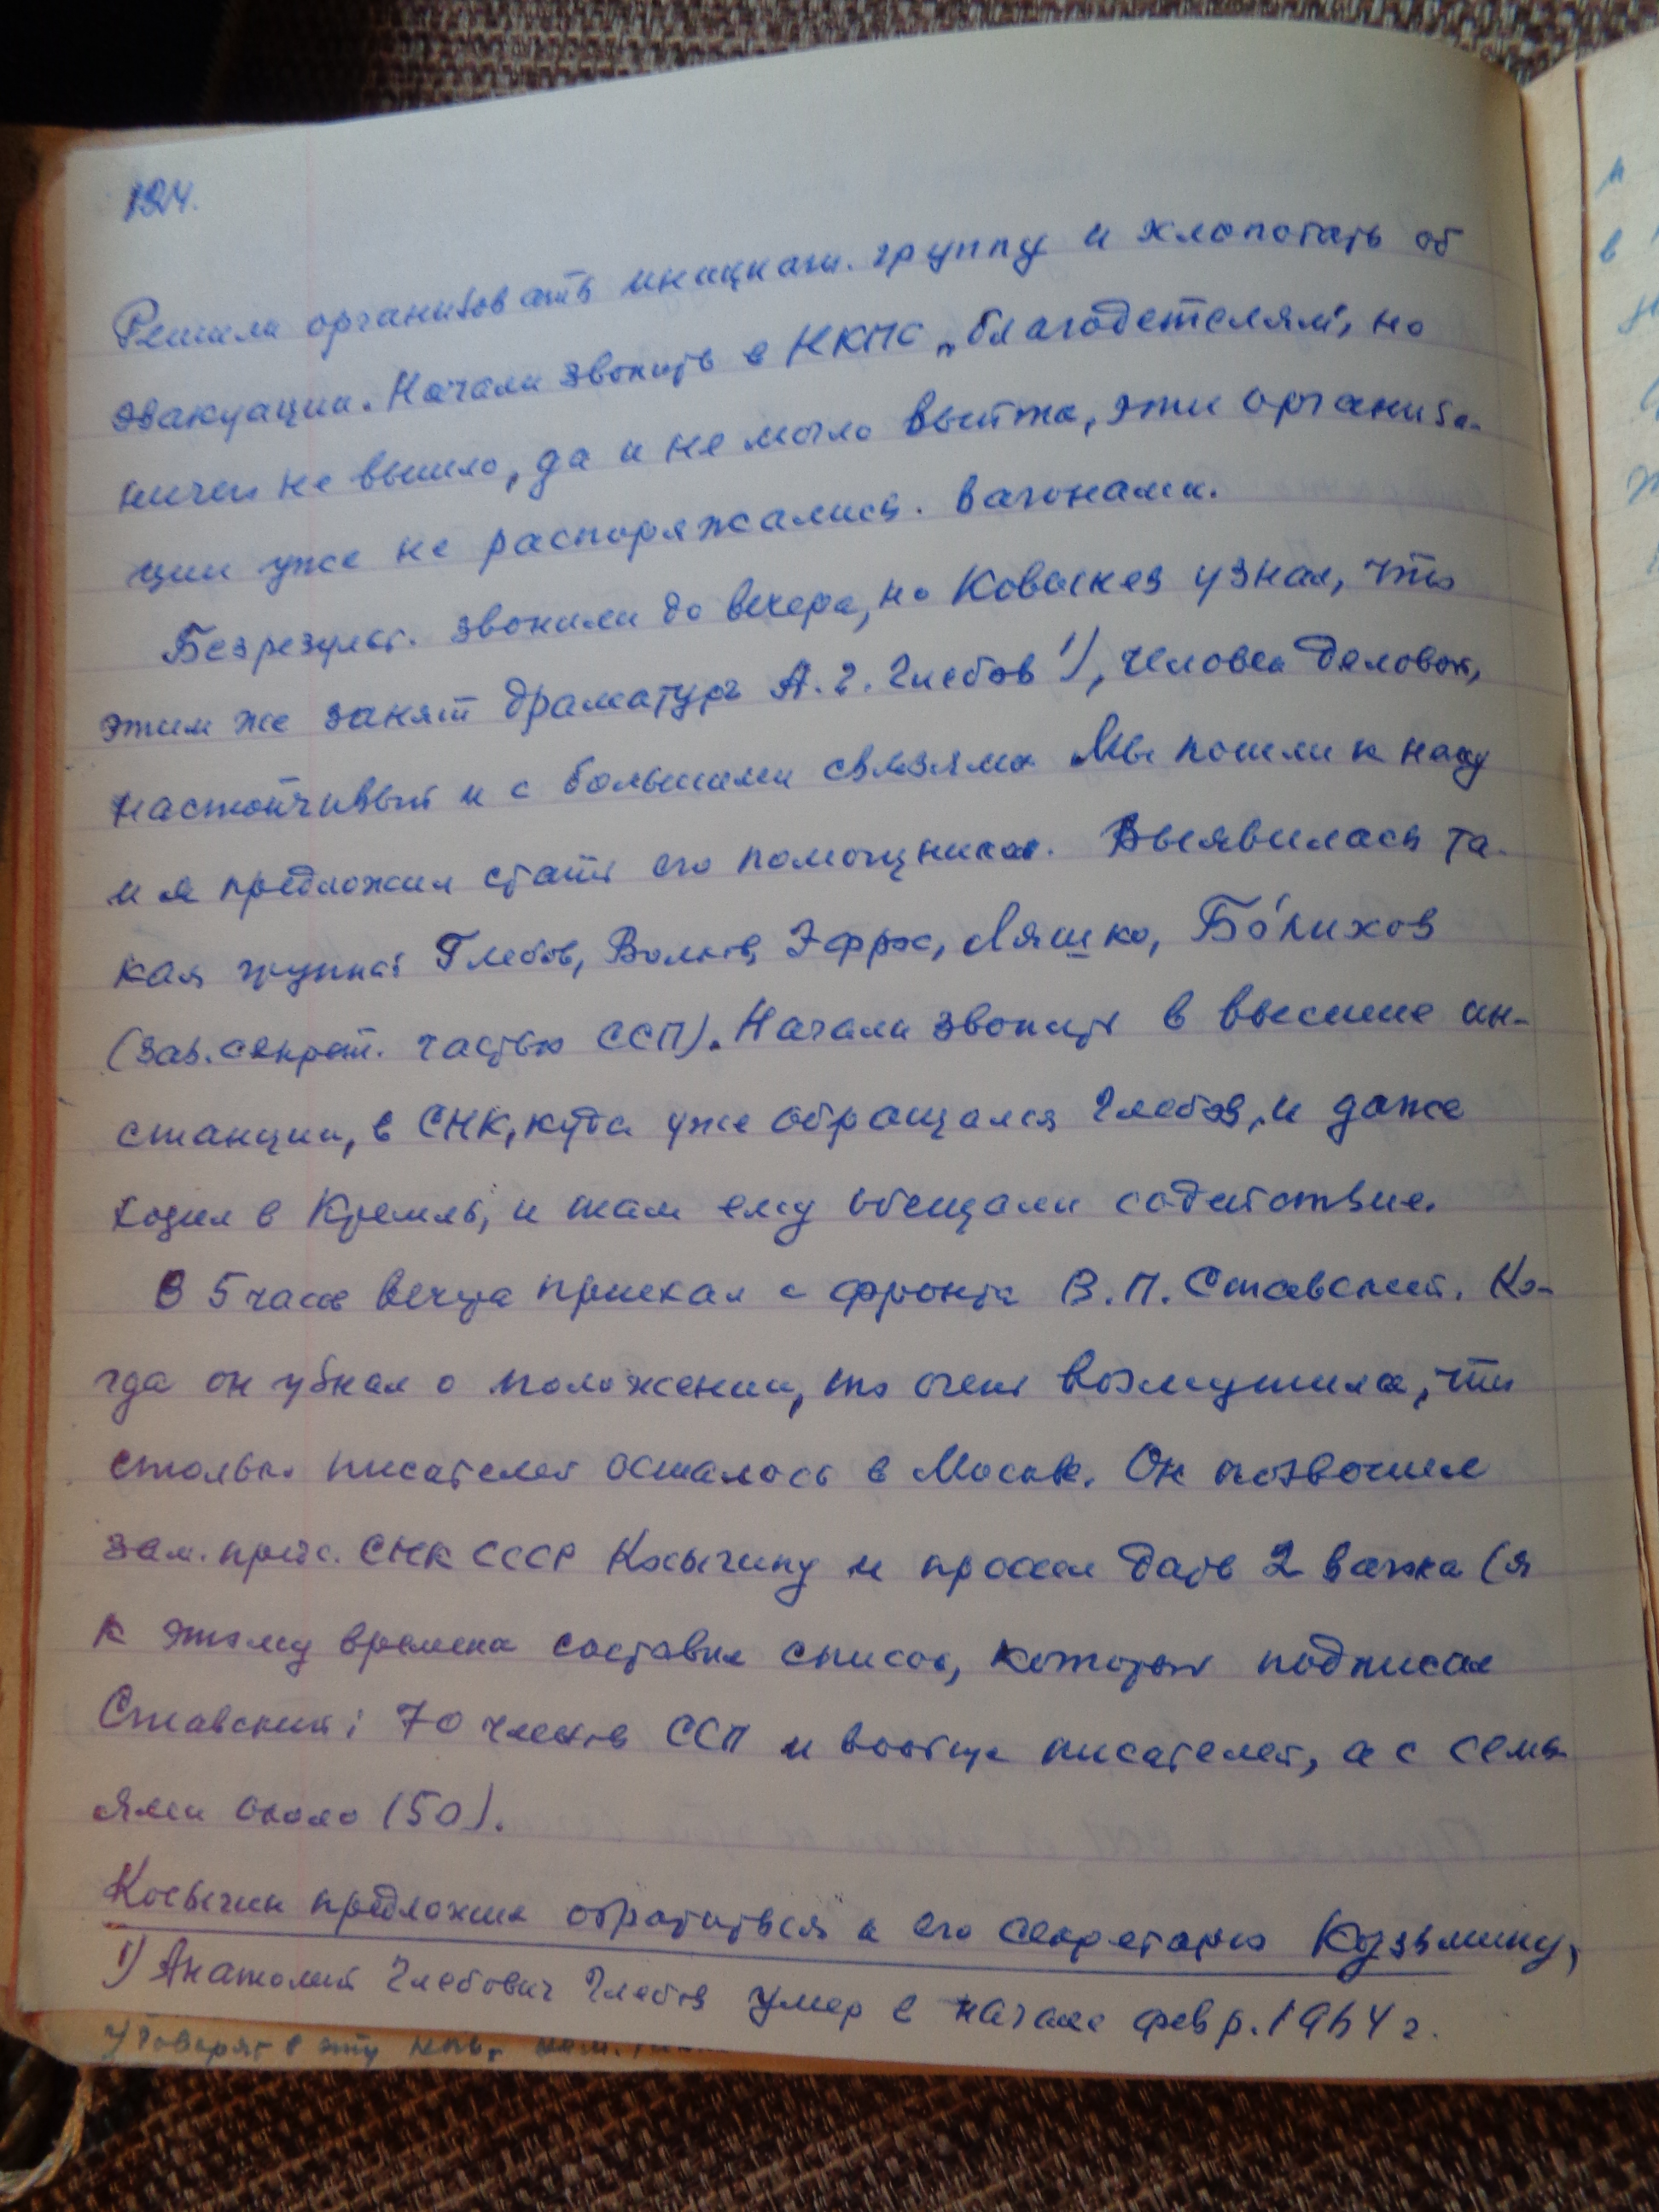 124.
Решили организовать инициат. группу и хлопотать об
эвакуации. Начали звонить в НКПС „благодетелям“, но
ничего не вышло, да и не могло выйти, эти организа-
ции уже не распоряжались вагонами.
Безрезульт. звонили до вечера, но Ковалев узнал, что
этим же занят драматург А. Г. Глебов ¹), человек деловой,
настойчивый и с большими связями. Мы пошли к нему
и я предложил стать его помощником. Выявилась та-
кая группа: Глебов, Волков, Эфрос, Ляшко, Бо́лихов
(зав. секрет. частью ССП). Начали звонить в высшие ин-
станции, в СНК, куда уже обращался Глебов, и даже
ходил в Кремль, и там ему обещали содействие.
В 5 часов вечера приехал с фронта В. П. Ставский. Ко-
гда он узнал о положении, то очень возмутился, что
столько писателей осталось в Москве. Он позвонил
зам. предс. СНК СССР Косыгину и просил дать 2 вагона (я
к этому времени составил список, который подписал
Ставский: 70 членов ССП и вообще писателей, а с семь-
ями около 150).
Косыгин предложил обратиться к его секретарю Кузьмину,
¹) Анатолий Глебович Глебов умер в начале февр. 1964 г.
Говорят в эту ночь